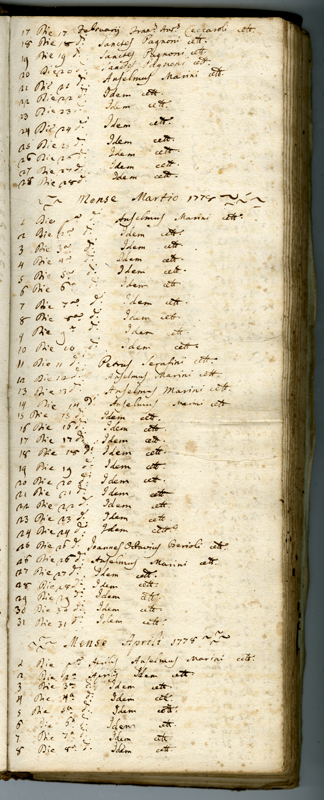 17 Die 17 Februarij Franc. Ant. Ceccaroli cett.
18 Die 18 d. Sanctes Pagnoni cett.
19 Die 19 d. Sanctes Pagnoni cett.
20 Die 20 d. Sanctes Pagnoni cett.
21 Die 21 d. Anselmus Marini cett.
22 Die 22 d. Idem cett.
23 Die 23 d. Idem cett.
24 Die 24 d. Idem cett.
25 Die 25 d. Idem cett.
26 Die 26 d. Idem cett.
27 Die 27 d. Idem cett.
28 Die 28 d. Idem cett.
Mense Martio 1778
1 Die d. Anselmus Marini cett.
2 Die 2 d. Idem cett.
3 Die 3 d. Idem cett.
4 Die 4 d. Idem cett.
5 Die 5 d. Idem cett.
6 Die 6 d. Idem cett.
7 Die 7 d. Idem cett.
8 Die 8 d. Idem cett.
9 Die 9 d. Idem cett.
10 Die 10 d. Idem cett.
11 Die 11 d. Petrus Serafini cett.
12 Die 12 d. Anselmus Marini cett.
13 Die 13 d. Anselmus Marini cett.
14 Die 14 d. Anselmus Marini cett.
15 Die 15 d. Idem cett.
16 Die 16 d. Idem cett.
17 Die 17 d. Idem cett.
18 Die 18 d. Idem cett.
19 Die 19 d. Idem cett.
20 Die 20 d. Idem cett.
21 Die 21 d. Idem cett.
22 Die 22 d. Idem cett.
23 Die 23 d. Idem cett.
24 Die 24 d. Idem cett.
25 Die 25 d. Joannes Octavius cett.
26 Die 26 d. Anselmus Marini cett.
27 Die 27 d. Idem cett.
28 Die 28 d. Idem cett.
29 Die 29 d. Idem cett.
30 Die 30 d. Idem cett.
31 Die 31 d. Idem cett.
Mense Aprili 1778
1 Die Aprilis Anselmus Marini cett.
2 Die 2 Aprilis Idem cett.
3 Die 3 d. Idem cett.
4 Die 4 d. Idem cett.
5 Die 5 d. Idem cett.
6 Die 6 d. Idem cett.
7 Die 7 d. Idem cett.
8 Die 8 d. Idem cett.